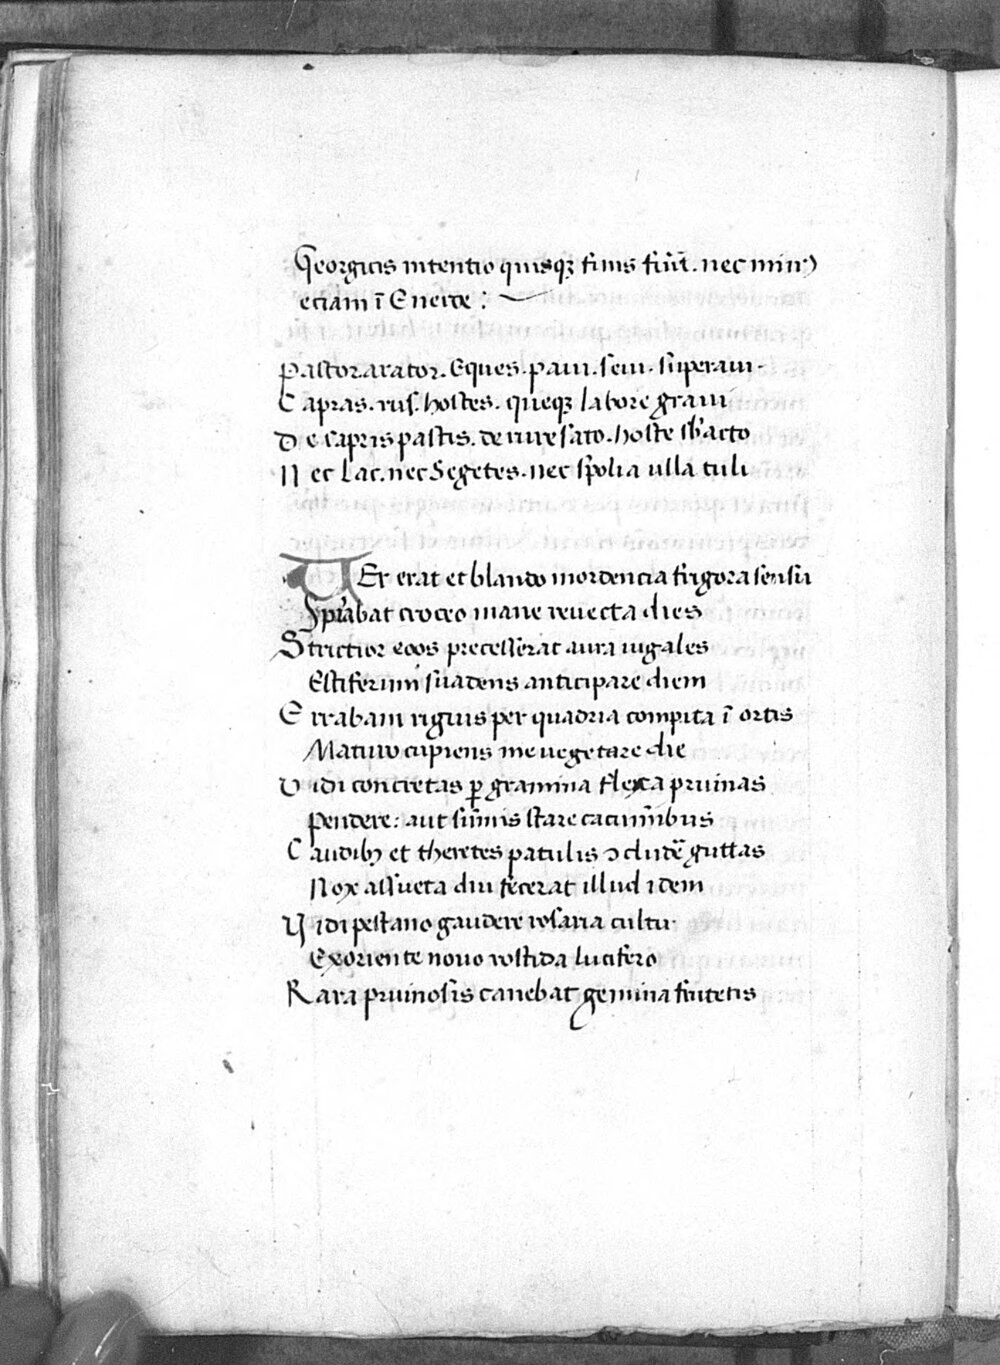 Georgicis intentio quisqꝫ finis fuit̄. nec minꝰ
etiam ī Eneide :
Pastor. arator. Eques. paui. seui. superaui.
Capras. rus. hostes. queqꝫ labore graui
De capris pastis. de rure sato. hoste sbacto
Nec Lac. nec Segetes. nec spolia ulla tuli
VEr erat et blando mordencia frigora sensu
Spirabat croceo mane reuecta dies
Strictior eoos precesserat aura iugales
Estiferum suadens anticipare diem
Errabam riguis per quadria compita ī ortis
Maturo cupiens me uegetare die
Vidi concretas ꝑ gramina flexa pruinas
Pendere: aut sum̄is stare cacumīnibus
Caudibꝫ et theretes patulis ↄcludē guttas
Nox assueta diu fecerat illud idem
Vidi pestano gaudere rosaria cultu
Exoriente nouo roscida lucifero
Rara pruinosis canebat gemina frutetis